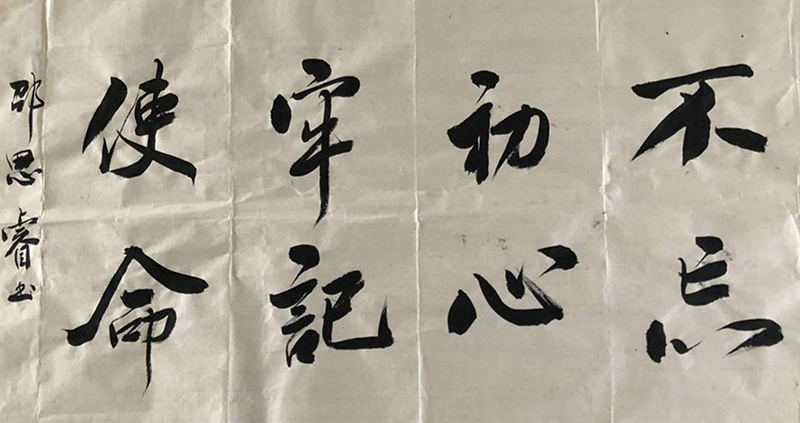 不忘
初心
牢記
使命
邵思睿书